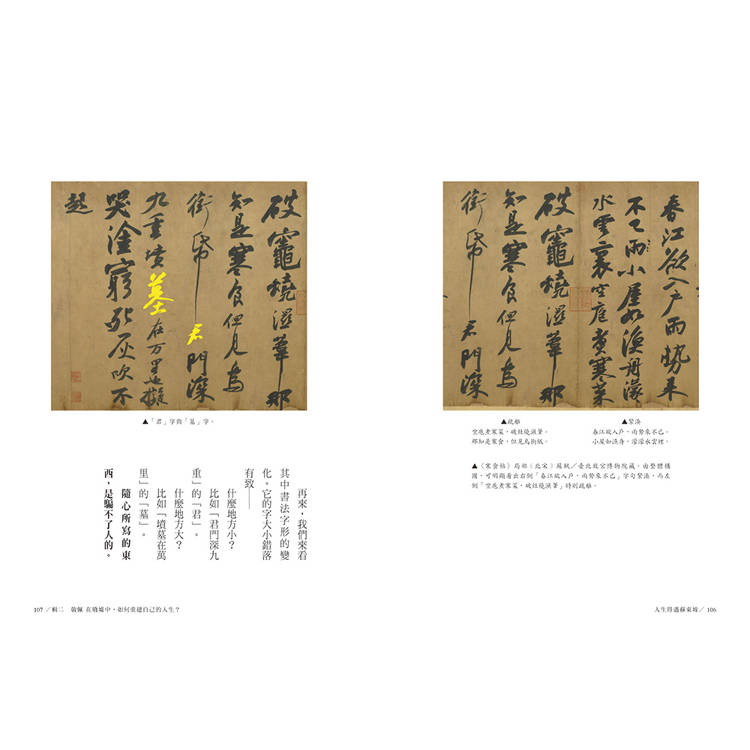 春江欲入戶雨勢來
不已雨小屋如漁舟濛
水雲裏空庖煮寒菜
破竈燒濕葦那
知是寒食但見烏
銜帋君門深
▲緊湊
春江欲入戶,雨勢來不已。
小屋如漁舟,濛濛水雲裡。
▲疏離
空庖煮寒菜,破灶燒濕葦。
那知是寒食,但見烏銜紙。
▲《寒食帖》局部(北宋)蘇軾/臺北故宮博物院藏。由整體構
圖,可明顯看出右側「春江欲入戶,雨勢來不已」字句緊湊,而左
側「空庖煮寒菜,破灶燒濕葦」時則疏離。
人生得遇蘇東坡/106
破竈燒濕葦那
知是寒食但見烏
銜帋君門深
九重墳墓在万里也擬
哭塗窮死灰吹不
起
▲「君」字與「墓」字。
再來,我們來看
其中書法字形的變
化。它的字大小錯落
有致——
什麼地方小?
比如「君門深九
重」的「君」。
什麼地方大?
比如「墳墓在萬
里」的「墓」。
隨心所寫的東
西,是騙不了人的。
107/輯二 敬佩 在廢墟中,如何重建自己的人生?